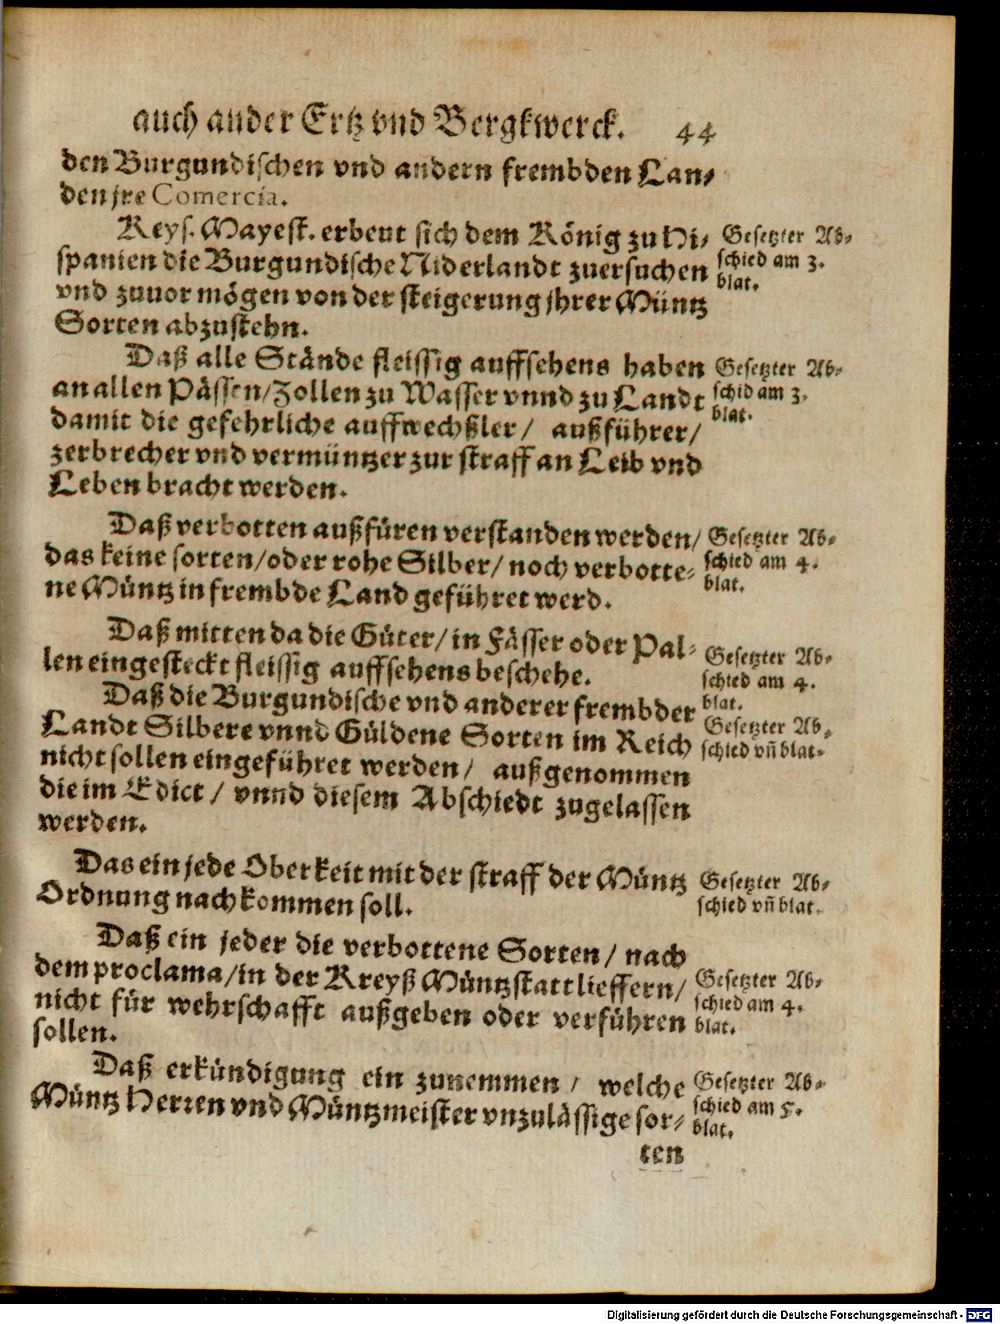 auch ander Ertz vnd Bergkwerck. 44
den Burgundischen vnd andern frembden Lan-
den jre Comercia.
Keys. Mayest. erbeut sich dem König zu Hi-
spanien die Burgundische Niderlandt zuersuchen
vnd zuuor mögen von der steigerung jhrer Müntz
Sorten abzustehn.
Gesetzter Ab-
schied am 3.
blat.
Daß alle Stände fleissig auffsehens haben
an allen Pässen/Zollen zu Wasser vnnd zu Landt
damit die gefehrliche auffwechßler/ außführer/
zerbrecher vnd vermüntzer zur straff an Leib vnd
Leben bracht werden.
Gesetzter Ab-
schid am 3.
blat.
Daß verbotten außfüren verstanden werden/
das keine sorten/oder rohe Silber/ noch verbotte-
ne Müntz in frembde Land geführet werd.
Gesetzter Ab-
schied am 4.
blat.
Daß mitten da die Güter/in Fässer oder Pal-
len eingesteckt fleissig auffsehens beschehe.
Gesetzter Ab-
schied am 4.
blat.
Daß die Burgundische vnd anderer frembder
Landt Silbere vnnd Güldene Sorten im Reich
nicht sollen eingeführet werden/ außgenommen
die im Edict/ vnnd diesem Abschiedt zugelassen
werden.
Gesetzter Ab-
schied vñ blat.
Das ein jede Oberkeit mit der straff der Müntz
Ordnung nachkommen soll.
Gesetzter Ab-
schied vñ blat.
Daß ein jeder die verbottene Sorten/ nach
dem proclama/in der Kreyß Müntzstatt lieffern/
nicht für wehrschafft außgeben oder verführen
sollen.
Gesetzter Ab-
schied am 4.
blat.
Daß erkündigung ein zunemmen/ welche
Müntz Herren vnd Müntzmeister vnzulässige sor-
Gesetzter Ab-
schied am 5.
blat.
ten
Digitalisierung gefördert durch die Deutsche Forschungsgemeinschaft - DFG